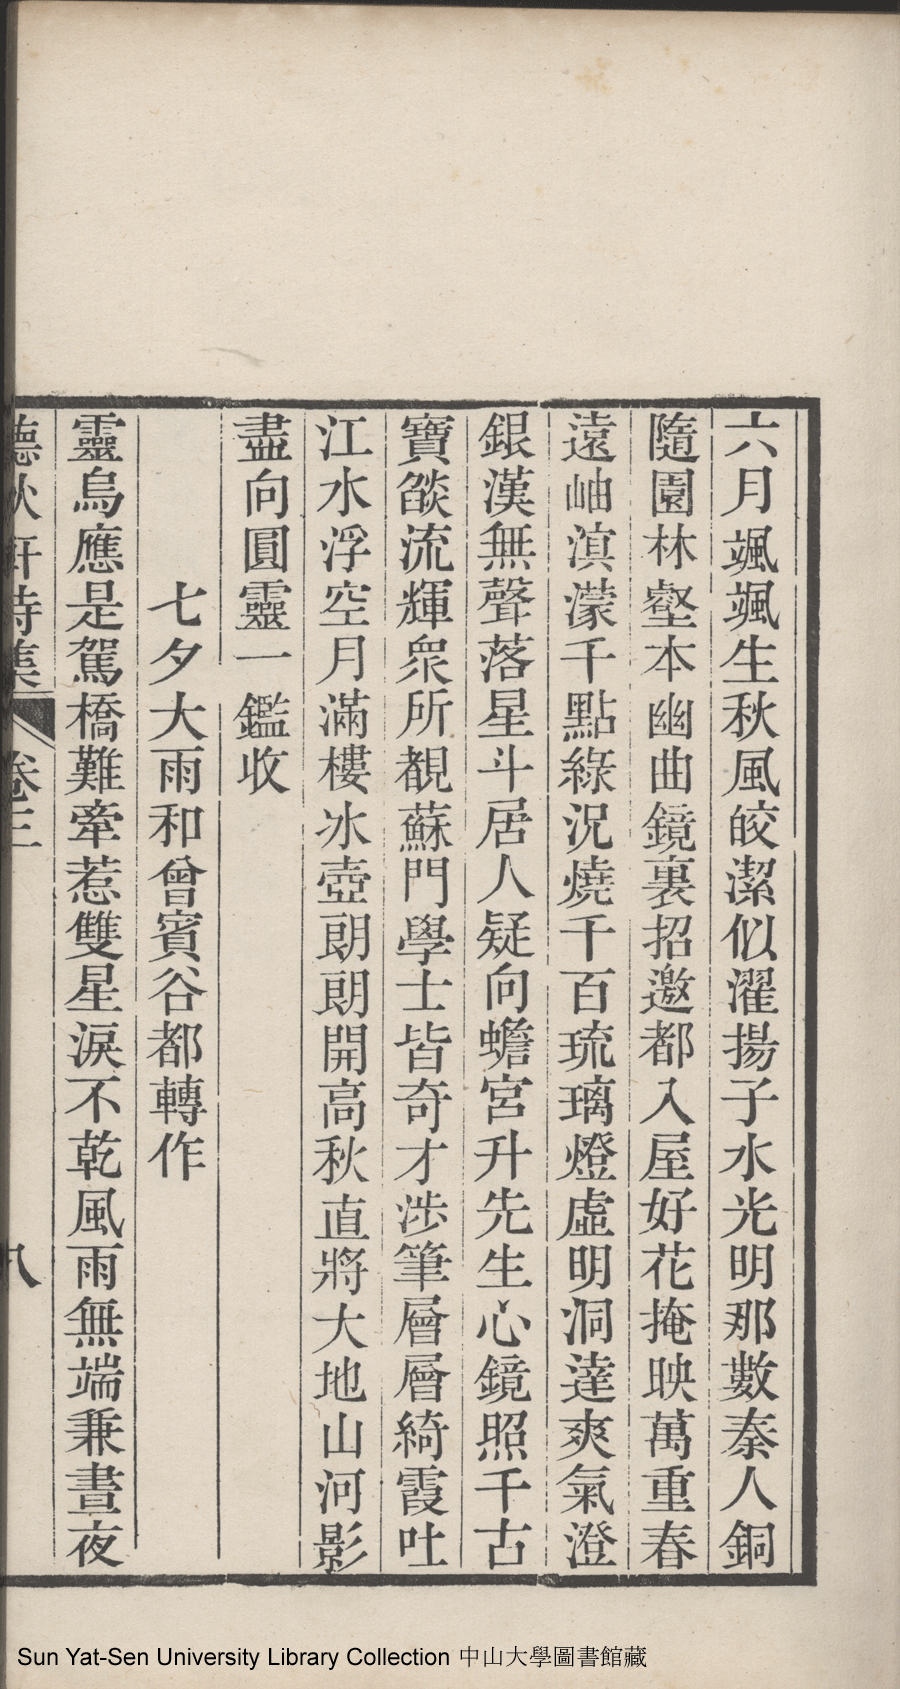 六月颯颯生秋風皎潔似濯揚子水光明那數秦人銅
隨園林壑本幽曲鏡裏招邀都入屋好花掩映萬重春
遠岫濛千點綠況燒千百琉璃燈虛明洞達爽氣澄
銀漢無聲落星斗居人疑向蟾宮升先生心鏡照千古
寶燄流輝衆所覩蘇門學士皆奇才涉筆層層綺霞吐
江水浮空月滿樓冰壺朗朗開高秋直將大地山河影
盡向圓靈一鑑收
七夕大雨和曾賓谷都轉作
靈烏應是駕橋難牽惹雙星淚不乾風雨無端兼晝夜
聽秋軒詩集 卷三 八
Sun Yat-Sen University Library Collection 中山大學圖書館藏